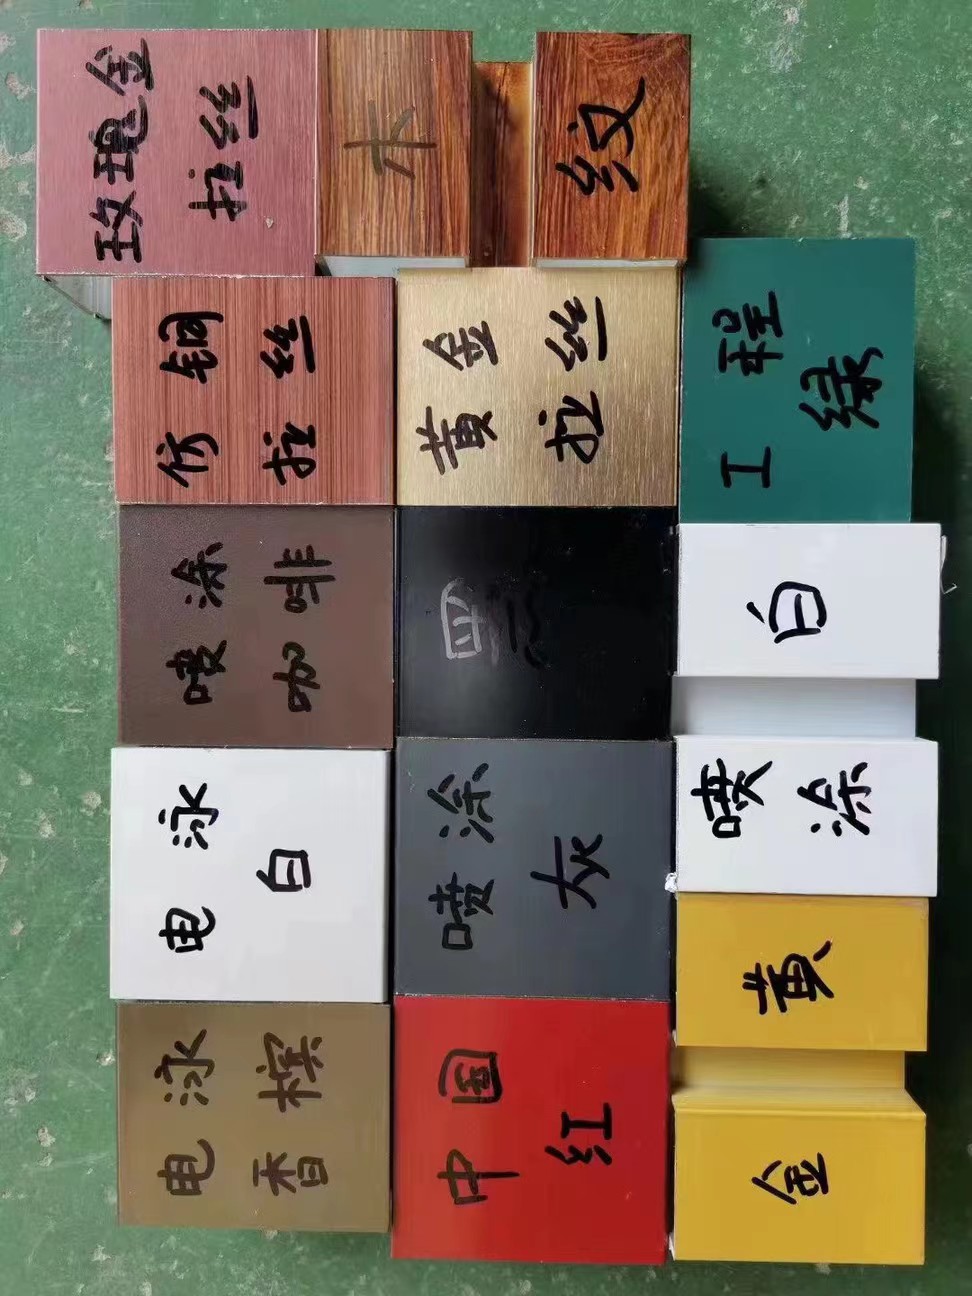 电泳
香槟
电泳
白
喷涂
咖啡
仿铜
拉丝
玫瑰金
拉丝
中国
红
喷涂
灰
黑
黄金
拉丝
木
纹
金
黄
喷
涂
白
工程
绿